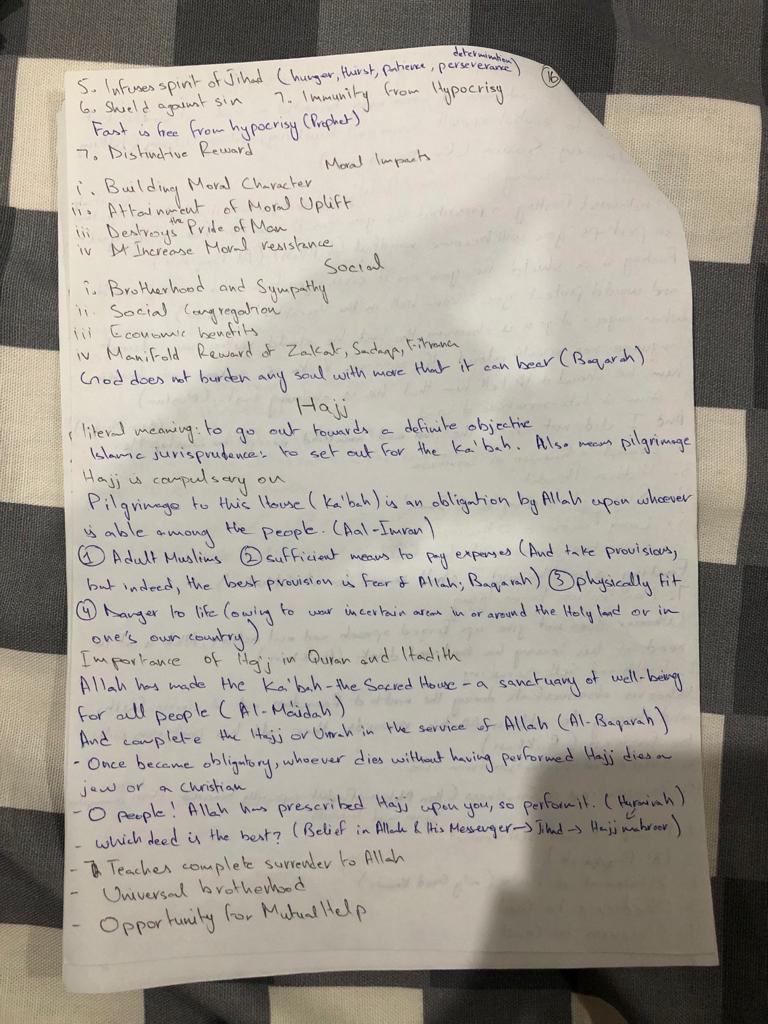 determination
5. Infuses spirit of Jihad (hunger, thirst, patience, perseverance)
16
6. Shield against sin 7. Immunity from Hypocrisy
Fast is free from hypocrisy (Prophet)
7. Distinctive Reward
Moral Impacts
i. Building Moral Character
ii. Attainment of Moral Uplift
iii Destroys the Pride of Man
iv Increase Moral resistance
Social
i. Brotherhood and Sympathy
ii. Social Congregation
iii Economic benefits
iv Manifold Reward of Zakat, Sadaqa, Fitrana
God does not burden any soul with more that it can bear (Baqarah)
Hajj
literal meaning: to go out towards a definite objective
Islamic jurisprudence: to set out for the Ka'bah. Also means pilgrimage
Hajj is compulsory on
Pilgrimage to this House (Ka'bah) is an obligation by Allah upon whoever
is able among the people. (Aal-Imran)
① Adult Muslims ② sufficient means to pay expenses (And take provisions,
but indeed, the best provision is fear of Allah; Baqarah) ③ physically fit
④ Danger to life (owing to war in certain areas in or around the Holy land or in
one's own country)
Importance of Hajj in Quran and Hadith
Allah has made the Ka'bah - the Sacred House - a sanctuary of well-being
for all people (Al-Maidah)
And complete the Hajj or Umrah in the service of Allah (Al-Baqarah)
- Once become obligatory, whoever dies without having performed Hajj dies a
jew or a christian
- O people! Allah has prescribed Hajj upon you, so perform it. (Hurairah)
- which deed is the best? (Belief in Allah & His Messenger → Jihad → Hajj mabroor)
- Teaches complete surrender to Allah
- Universal brotherhood
- Opportunity for Mutual Help